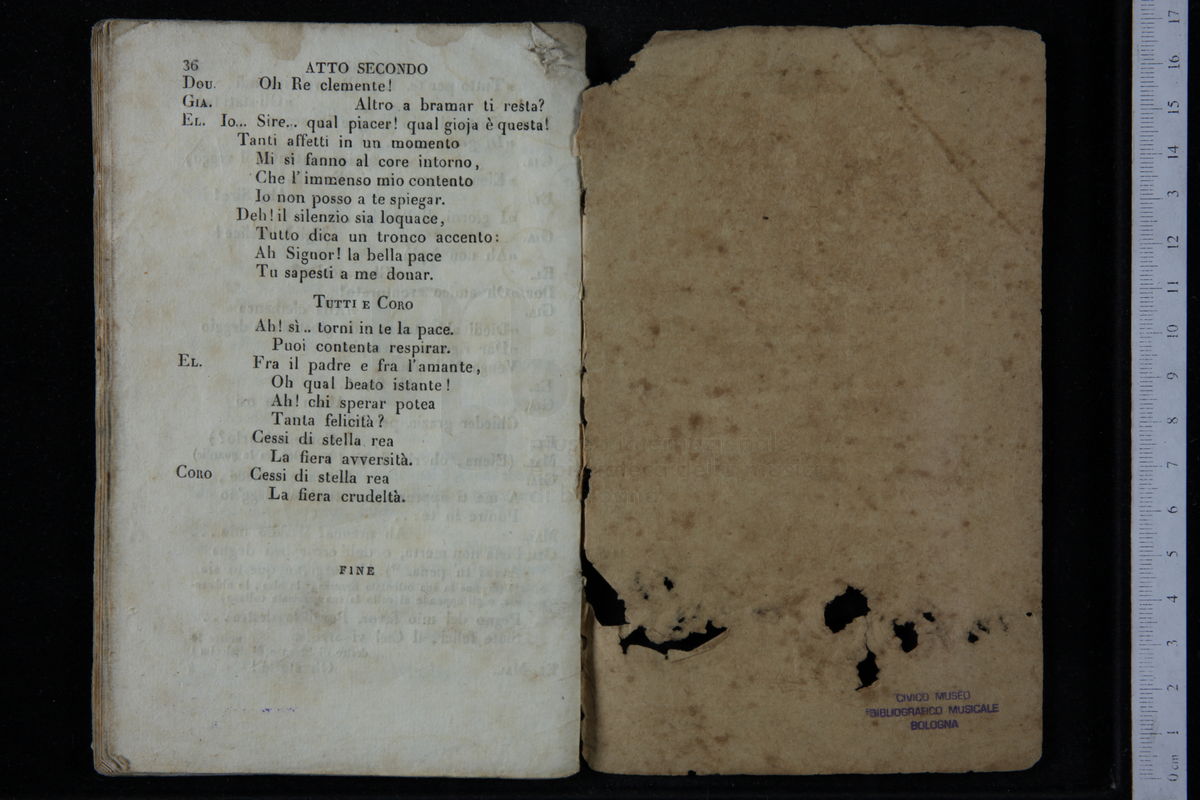 36 ATTO SECONDO
Dou. Oh Re clemente!
Gia. Altro a bramar ti resta?
El. Io... Sire... qual piacer! qual gioja è questa!
Tanti affetti in un momento
Mi si fanno al core intorno,
Che l'immenso mio contento
Io non posso a te spiegar.
Deh! il silenzio sia loquace,
Tutto dica un tronco accento:
Ah Signor! la bella pace
Tu sapesti a me donar.
Tutti e Coro
Ah! sì.. torni in te la pace.
Puoi contenta respirar.
El. Fra il padre e fra l'amante,
Oh qual beato istante!
Ah! chi sperar potea
Tanta felicità?
Cessi di stella rea
La fiera avversità.
Coro Cessi di stella rea
La fiera crudeltà.
FINE
CIVICO MUSEO
BIBLIOGRAFICO MUSICALE
BOLOGNA
17
16
15
14
3
12
11
10
9
8
7
6
5
4
3
2
1
0 cm